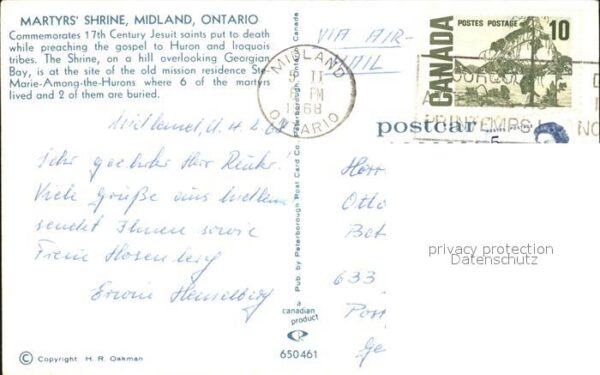 MARTYRS' SHRINE, MIDLAND, ONTARIO
Commemorates 17th Century Jesuit saints put to death
while preaching the gospel to Huron and Iroquois
tribes. The Shrine, on a hill overlooking Georgian
Bay, is at the site of the old mission residence Ste-
Marie-Among-the-Hurons where 6 of the martyrs
lived and 2 of them are buried.
VIA AIR-
MAIL
MIDLAND
5 II
PM
1968
ONTARIO
POSTES POSTAGE
10
CANADA
PRINTEMPS
postcar
5
Midland, d. 4.2.68
Sehr geehrter Herr
Viele Grüße aus Midland
sendet Ihnen sowie
Erwin
Herr
Otto
Bet
633
Post
Ge
Pub. by Peterborough Postcard Co., Peterborough, Ontario, Canada
a
canadian
product
650461
© Copyright H. R. Oakman
privacy protection
Datenschutz